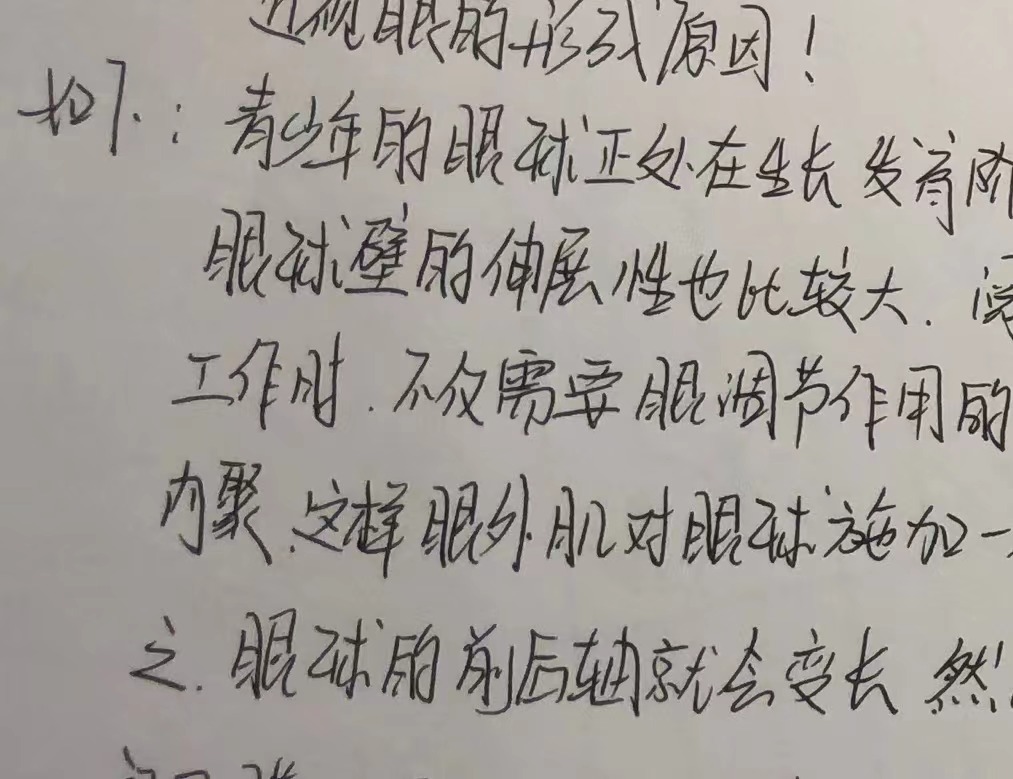 近视眼的形成原因！
如下：青少年的眼球正处在生长发育阶
眼球壁的伸展性也比较大．阅
工作时．不仅需要眼调节作用的
内聚．这样眼外肌对眼球施加一
之．眼球的前后轴就会变长 然